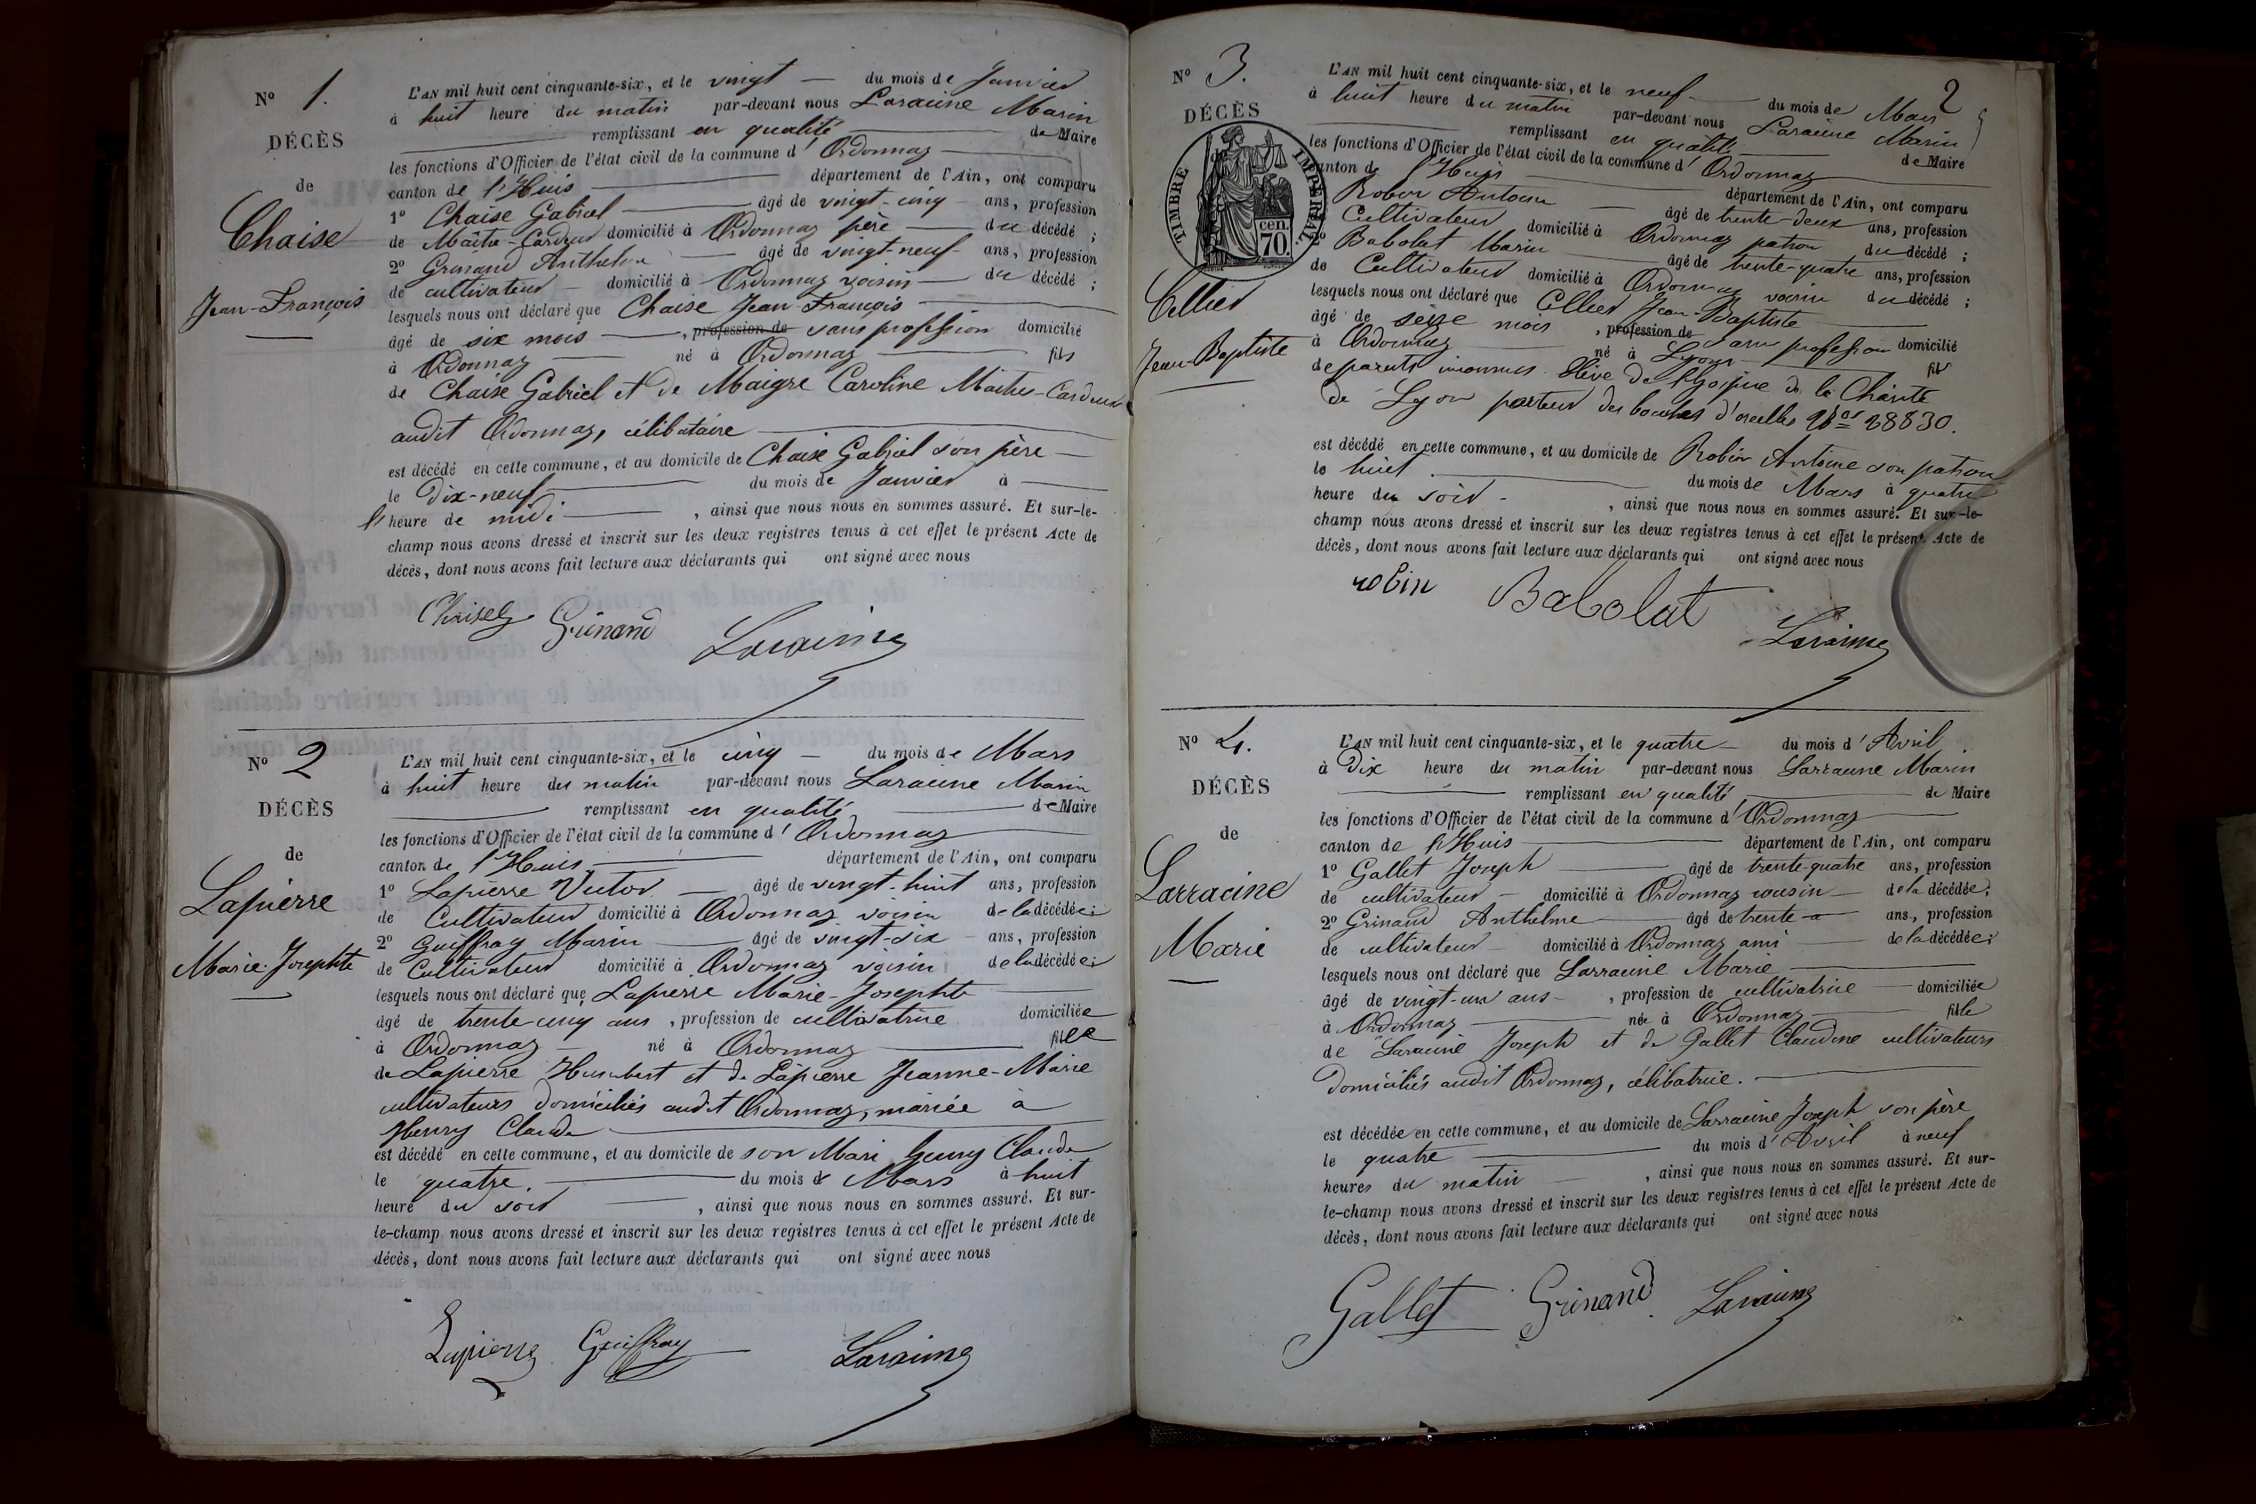 N° 1.
DÉCÈS
de
Chaise
Jean-François
L'AN mil huit cent cinquante-six, et le vingt — du mois de Janvier
à huit heure du matin par-devant nous Laracine Marin
remplissant en qualité de Maire
les fonctions d'Officier de l'état civil de la commune d' Ordonnaz
canton de l'Huis département de l'Ain, ont comparu
1° Chaise Gabriel âgé de vingt-cinq ans, profession
de Maître-Cardeur domicilié à Ordonnaz père du décédé ;
2° Grinand Anthelme âgé de vingt-neuf ans, profession
de cultivateur domicilié à Ordonnaz voisin du décédé ;
lesquels nous ont déclaré que Chaise Jean-François
âgé de six mois , profession de sans profession domicilié
à Ordonnaz né à Ordonnaz fils
de Chaise Gabriel et de Maigre Caroline Maitres-Cardeurs
audit Ordonnaz, célibataire
est décédé en cette commune, et au domicile de Chaise Gabriel son père
le Dix-neuf du mois de Janvier à
l'heure de midi , ainsi que nous nous en sommes assuré. Et sur-le-
champ nous avons dressé et inscrit sur les deux registres tenus à cet effet le présent Acte de
décès, dont nous avons fait lecture aux déclarants qui ont signé avec nous
Grinand Laracine
N° 2
DÉCÈS
de
Lapierre
Marie-Josephte
L'AN mil huit cent cinquante-six, et le cinq — du mois de Mars
à huit heure du matin par-devant nous Laracine Marin
remplissant en qualité de Maire
les fonctions d'Officier de l'état civil de la commune d' Ordonnaz
canton de l'Huis département de l'Ain, ont comparu
1° Lapierre Victor âgé de vingt-huit ans, profession
de Cultivateur domicilié à Ordonnaz voisin de la décédée ;
2° Guiffray Marin âgé de vingt-six ans, profession
de Cultivateur domicilié à Ordonnaz voisin de la décédée ;
lesquels nous ont déclaré que Lapierre Marie-Josephte
âgé de trente cinq ans , profession de cultivatrice domiciliée
à Ordonnaz né à Ordonnaz fille
de Lapierre Humbert et de Lapierre Jeanne-Marie
cultivateurs domiciliés audit Ordonnaz, mariée à
Henry Claude
est décédé en cette commune, et au domicile de son Mari Henry Claude
le quatre du mois de Mars à huit
heure du soir , ainsi que nous nous en sommes assuré. Et sur-
le-champ nous avons dressé et inscrit sur les deux registres tenus à cet effet le présent Acte de
décès, dont nous avons fait lecture aux déclarants qui ont signé avec nous
Lapierre Guiffray Laracine
2
N° 3.
DÉCÈS
TIMBRE IMPÉRIAL.
cen.
70.
Cellier
Jean-Baptiste
L'AN mil huit cent cinquante-six, et le neuf du mois de Mars
à huit heure du matin par-devant nous Laracine Marin
remplissant en qualité de Maire
les fonctions d'Officier de l'état civil de la commune d' Ordonnaz
canton de l'Huis département de l'Ain, ont comparu
Robin Antoine âgé de trente-deux ans, profession
Cultivateur domicilié à Ordonnaz patron du décédé ;
2° Babolat Marin âgé de trente-quatre ans, profession
de Cultivateur domicilié à Ordonnaz voisin du décédé ;
lesquels nous ont déclaré que Cellier Jean-Baptiste
âgé de seize mois , profession de sans profession domicilié
à Ordonnaz né à Lyon fils
de parents inconnus Elève de l'hospice de la Charité
de Lyon porteur des boucles d'oreilles 28830.
est décédé en cette commune, et au domicile de Robin Antoine son patron
le huit du mois de Mars à quatre
heure du soir , ainsi que nous nous en sommes assuré. Et sur-le-
champ nous avons dressé et inscrit sur les deux registres tenus à cet effet le présent Acte de
décès, dont nous avons fait lecture aux déclarants qui ont signé avec nous
robin Babolat Laracine
N° 4.
DÉCÈS
de
Larracine
Marie
L'AN mil huit cent cinquante-six, et le quatre du mois d'Avril
à Dix heure du matin par-devant nous Larracine Marin
remplissant en qualité, de Maire
les fonctions d'Officier de l'état civil de la commune d' Ordonnaz
canton de l'Huis département de l'Ain, ont comparu
1° Gallet Joseph âgé de trente-quatre ans, profession
de cultivateur domicilié à Ordonnaz cousin de la décédée ;
2° Grinand Anthelme âgé de trente ans, profession
de cultivateur domicilié à Ordonnaz ami de la décédée ;
lesquels nous ont déclaré que Larracine Marie
âgé de vingt-un ans , profession de cultivatrice domiciliée
à Ordonnaz née à Ordonnaz fille
de Laracine Joseph et de Gallet Claudine cultivateurs
domiciliés audit Ordonnaz, célibatrice.
est décédée en cette commune, et au domicile de Larracine Joseph son père
le quatre du mois d'Avril à neuf
heures du matin , ainsi que nous nous en sommes assuré. Et sur-
le-champ nous avons dressé et inscrit sur les deux registres tenus à cet effet le présent Acte de
décès, dont nous avons fait lecture aux déclarants qui ont signé avec nous
Gallet Grinand Laracine